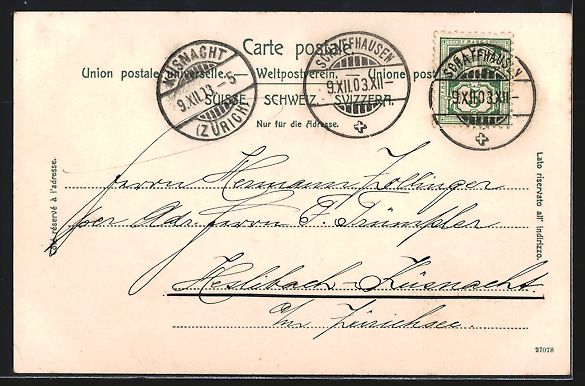 Carte postale.
Union postale universelle. — Weltpostverein. — Unione postale
SUISSE. SCHWEIZ. SVIZZERA.
Nur für die Adresse.
KÜSNACHT
9.XII.03.-5
(ZÜRICH)
SCHAFFHAUSEN
9.XII.03.XII-
SCHAFFHAUSEN
9.XII.03.XII-
5
Côté réservé à l'adresse.
Lato riservato all' indirizzo.
Herrn Hermann Zollinger
per Adr. Herrn F. Trümpler
Heslibach-Küsnacht
a/m Zürichsee.
27078